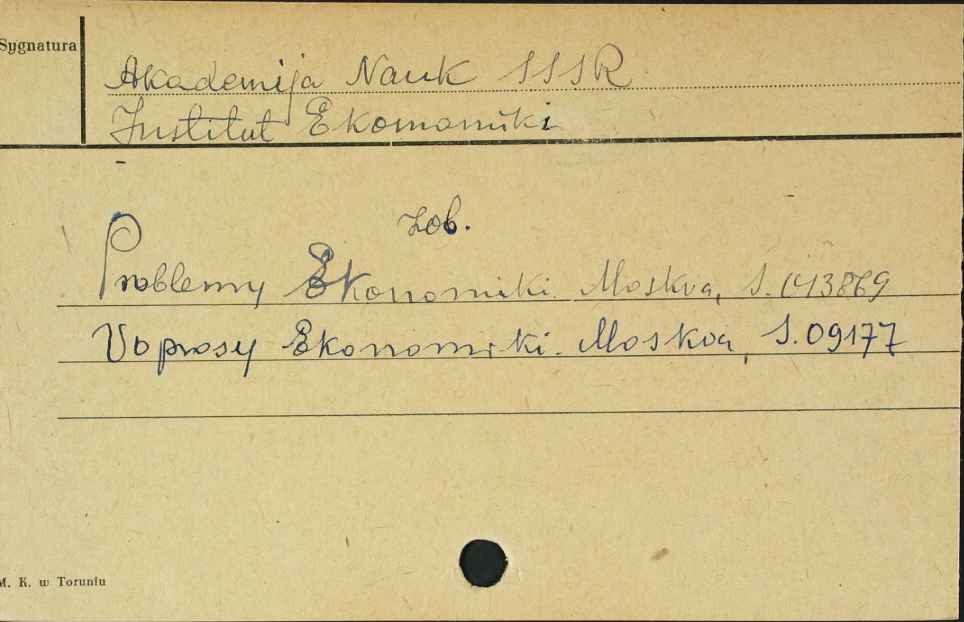 Sygnatura
Akademija Nauk SSSR
Institut Ekonomiki
zob.
Problemy Ekonomiki. Moskva, S. 013869
Voprosy Ekonomiki. Moskva, S. 09177
M. K. w Toruniu